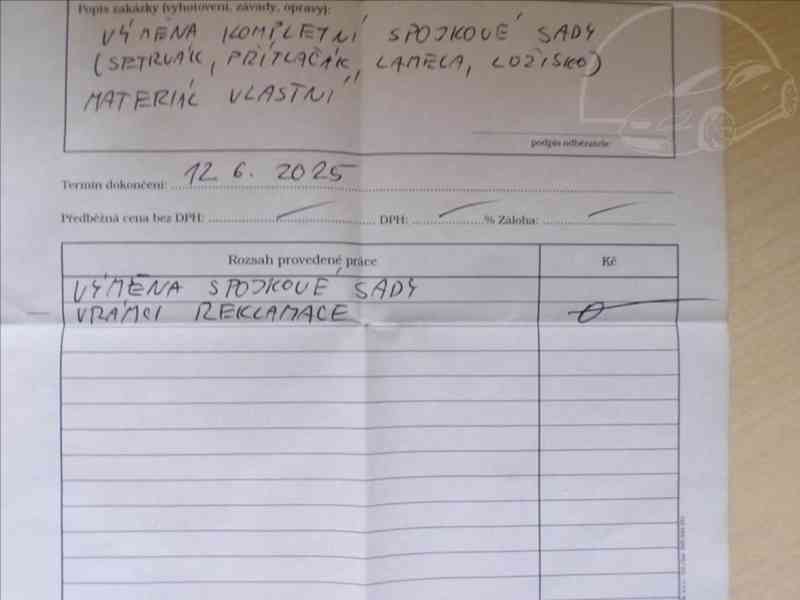 Popis zakázky (vyhotovení, závady, opravy):
VÝMĚNA KOMPLETNÍ SPOJKOVÉ SADY
(SETRVAK, PŘÍTLAČÁK, LAMELA, LOŽISKO)
MATERIÁL VLASTNÍ
podpis odběratele
Termín dokončení: 12 6. 2025
Předběžná cena bez DPH: DPH: % Záloha:
Rozsah provedené práce Kč
VÝMĚNA SPOJKOVÉ SADY
VRÁMCI REKLAMACE 0